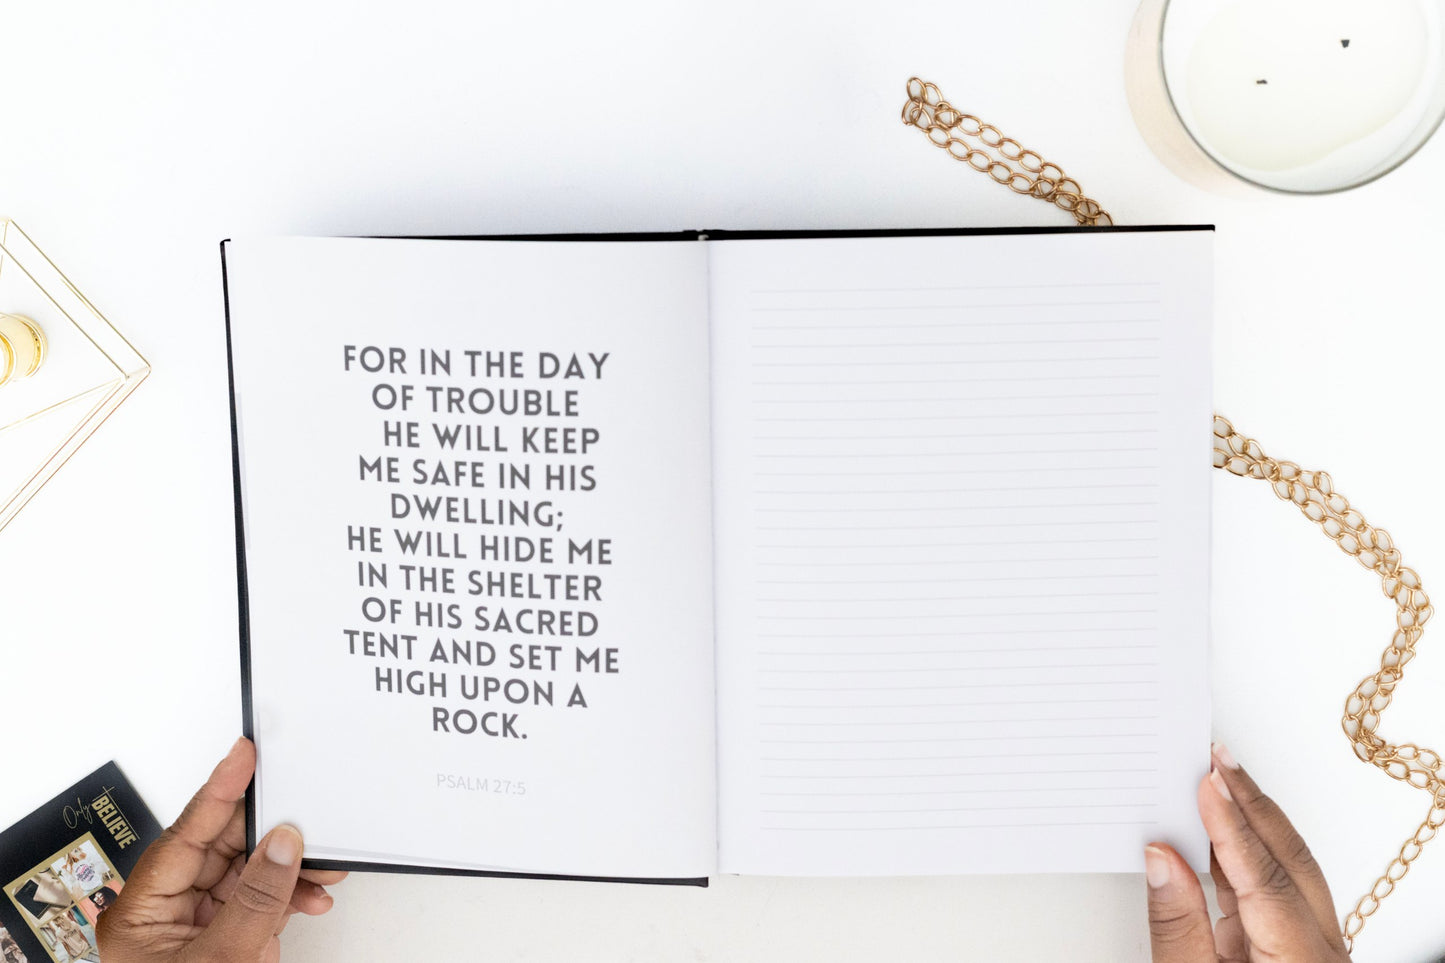 FOR IN THE DAY
OF TROUBLE
HE WILL KEEP
ME SAFE IN HIS
DWELLING;
HE WILL HIDE ME
IN THE SHELTER
OF HIS SACRED
TENT AND SET ME
HIGH UPON A
ROCK.
PSALM 27:5
Only
BELIEVE